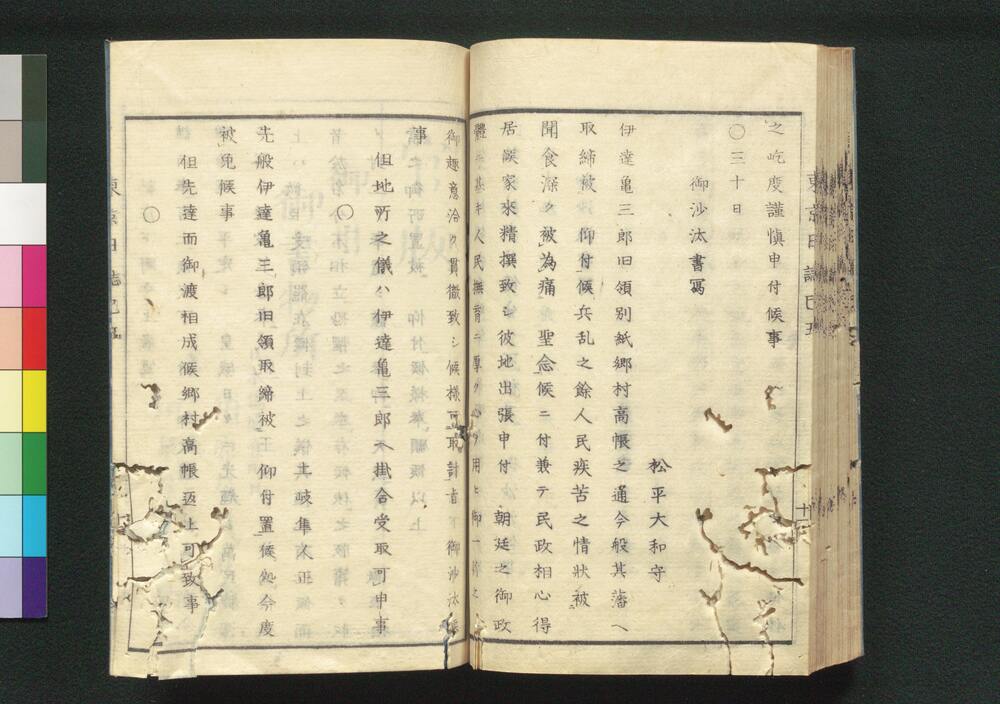 之屹度謹愼申付候事
〇三十日
御沙汰書寫
松平大和守
伊達亀三郎旧領別紙郷村高帳之通今般其藩へ
取締被　仰付候兵乱之餘人民疾苦之情狀被
聞食深ク被為痛　聖念候ニ付兼テ民政相心得
居候家來精撰致シ彼地出張申付　朝廷之御政
體ニ基キ人民撫育ニ厚ク心ヲ用ヒ御一新之
御趣意洽ク貫徹致シ候様可取計旨　御沙汰候
事
但地所之儀ハ伊達亀三郎へ掛合受取可申事
〇
土岐隼人正
先般伊達亀三郎旧領取締被　仰付置候処今度
被免候事
但先達而御渡相成候郷村高帳返上可致事
〇